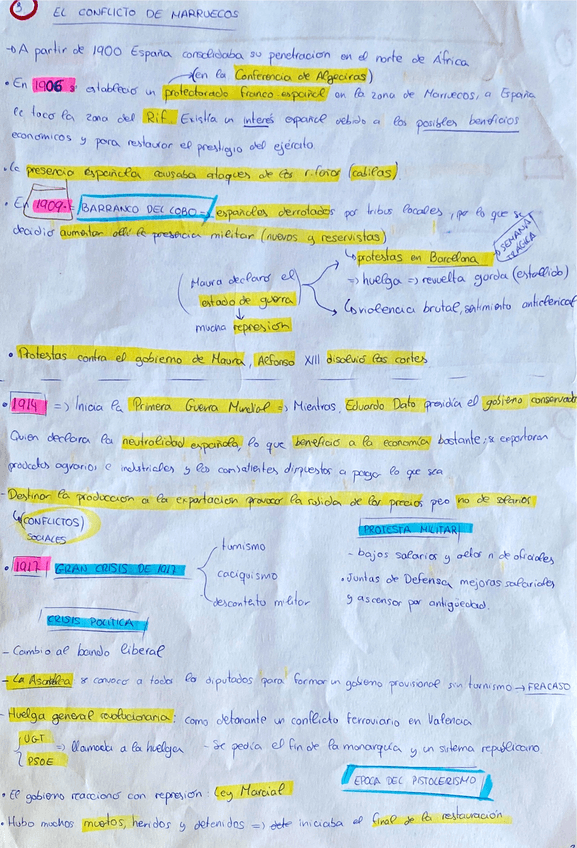 3 EL CONFLICTO DE MARRUECOS
→ A partir de 1900 España consolidaba su penetración en el norte de África
(en la Conferencia de Algeciras)
• En 1906 se estableció un protectorado franco español en la zona de Marruecos, a España
le toco la zona del Rif. Existía un interés español debido a los posibles beneficios
económicos y para restaurar el prestigio del ejército.
• La presencia española causaba ataques de los rifeños (cabilas).
• En 1909 ⇒ BARRANCO DEL LOBO ⇒ españoles derrotados por tribus locales, por lo que se
decidió aumentar allí la presencia militar (nuevos y reservistas)
↳ protestas en Barcelona → SEMANA TRÁGICA
⇒ huelga ⇒ revuelta gorda (estallido)
↳ violencia brutal, sentimiento anticlerical
Maura declaró el
estado de guerra
↓
mucha represión
• Protestas contra el gobierno de Maura, Alfonso XIII disolvió las cortes
• 1914 ⇒ Inicia la Primera Guerra Mundial ⇒ Mientras, Eduardo Dato presidía el gobierno conservad
Quien declara la neutralidad española, lo que benefició a la economía bastante; se exportaron
productos agrarios e industriales y los combatientes dispuestos a pagar lo que sea
- Destinar la producción a la exportación provocó la subida de los precios pero no de salarios
↳ CONFLICTOS
SOCIALES
• 1917 GRAN CRISIS DE 1917
turnismo
caciquismo
descontento militar
PROTESTA MILITAR
- bajos salarios y de oficiales
• Juntas de Defensa mejoras salariales
y ascensor por antigüedad.
CRISIS POLÍTICA
- Cambio al bando liberal
- La Asamblea se convocó a todos los diputados para formar un gobierno provisional sin turnismo → FRACASO
- Huelga general revolucionaria: como detonante un conflicto ferroviario en Valencia
UGT
PSOE
⇒ llamada a la huelga - Se pedía el fin de la monarquía y un sistema republicano
EPOCA DEL PISTOLERISMO
• El gobierno reaccionó con represión: Ley Marcial
• Hubo muchos muertos, heridos y detenidos ⇒ iniciaba el final de la restauración